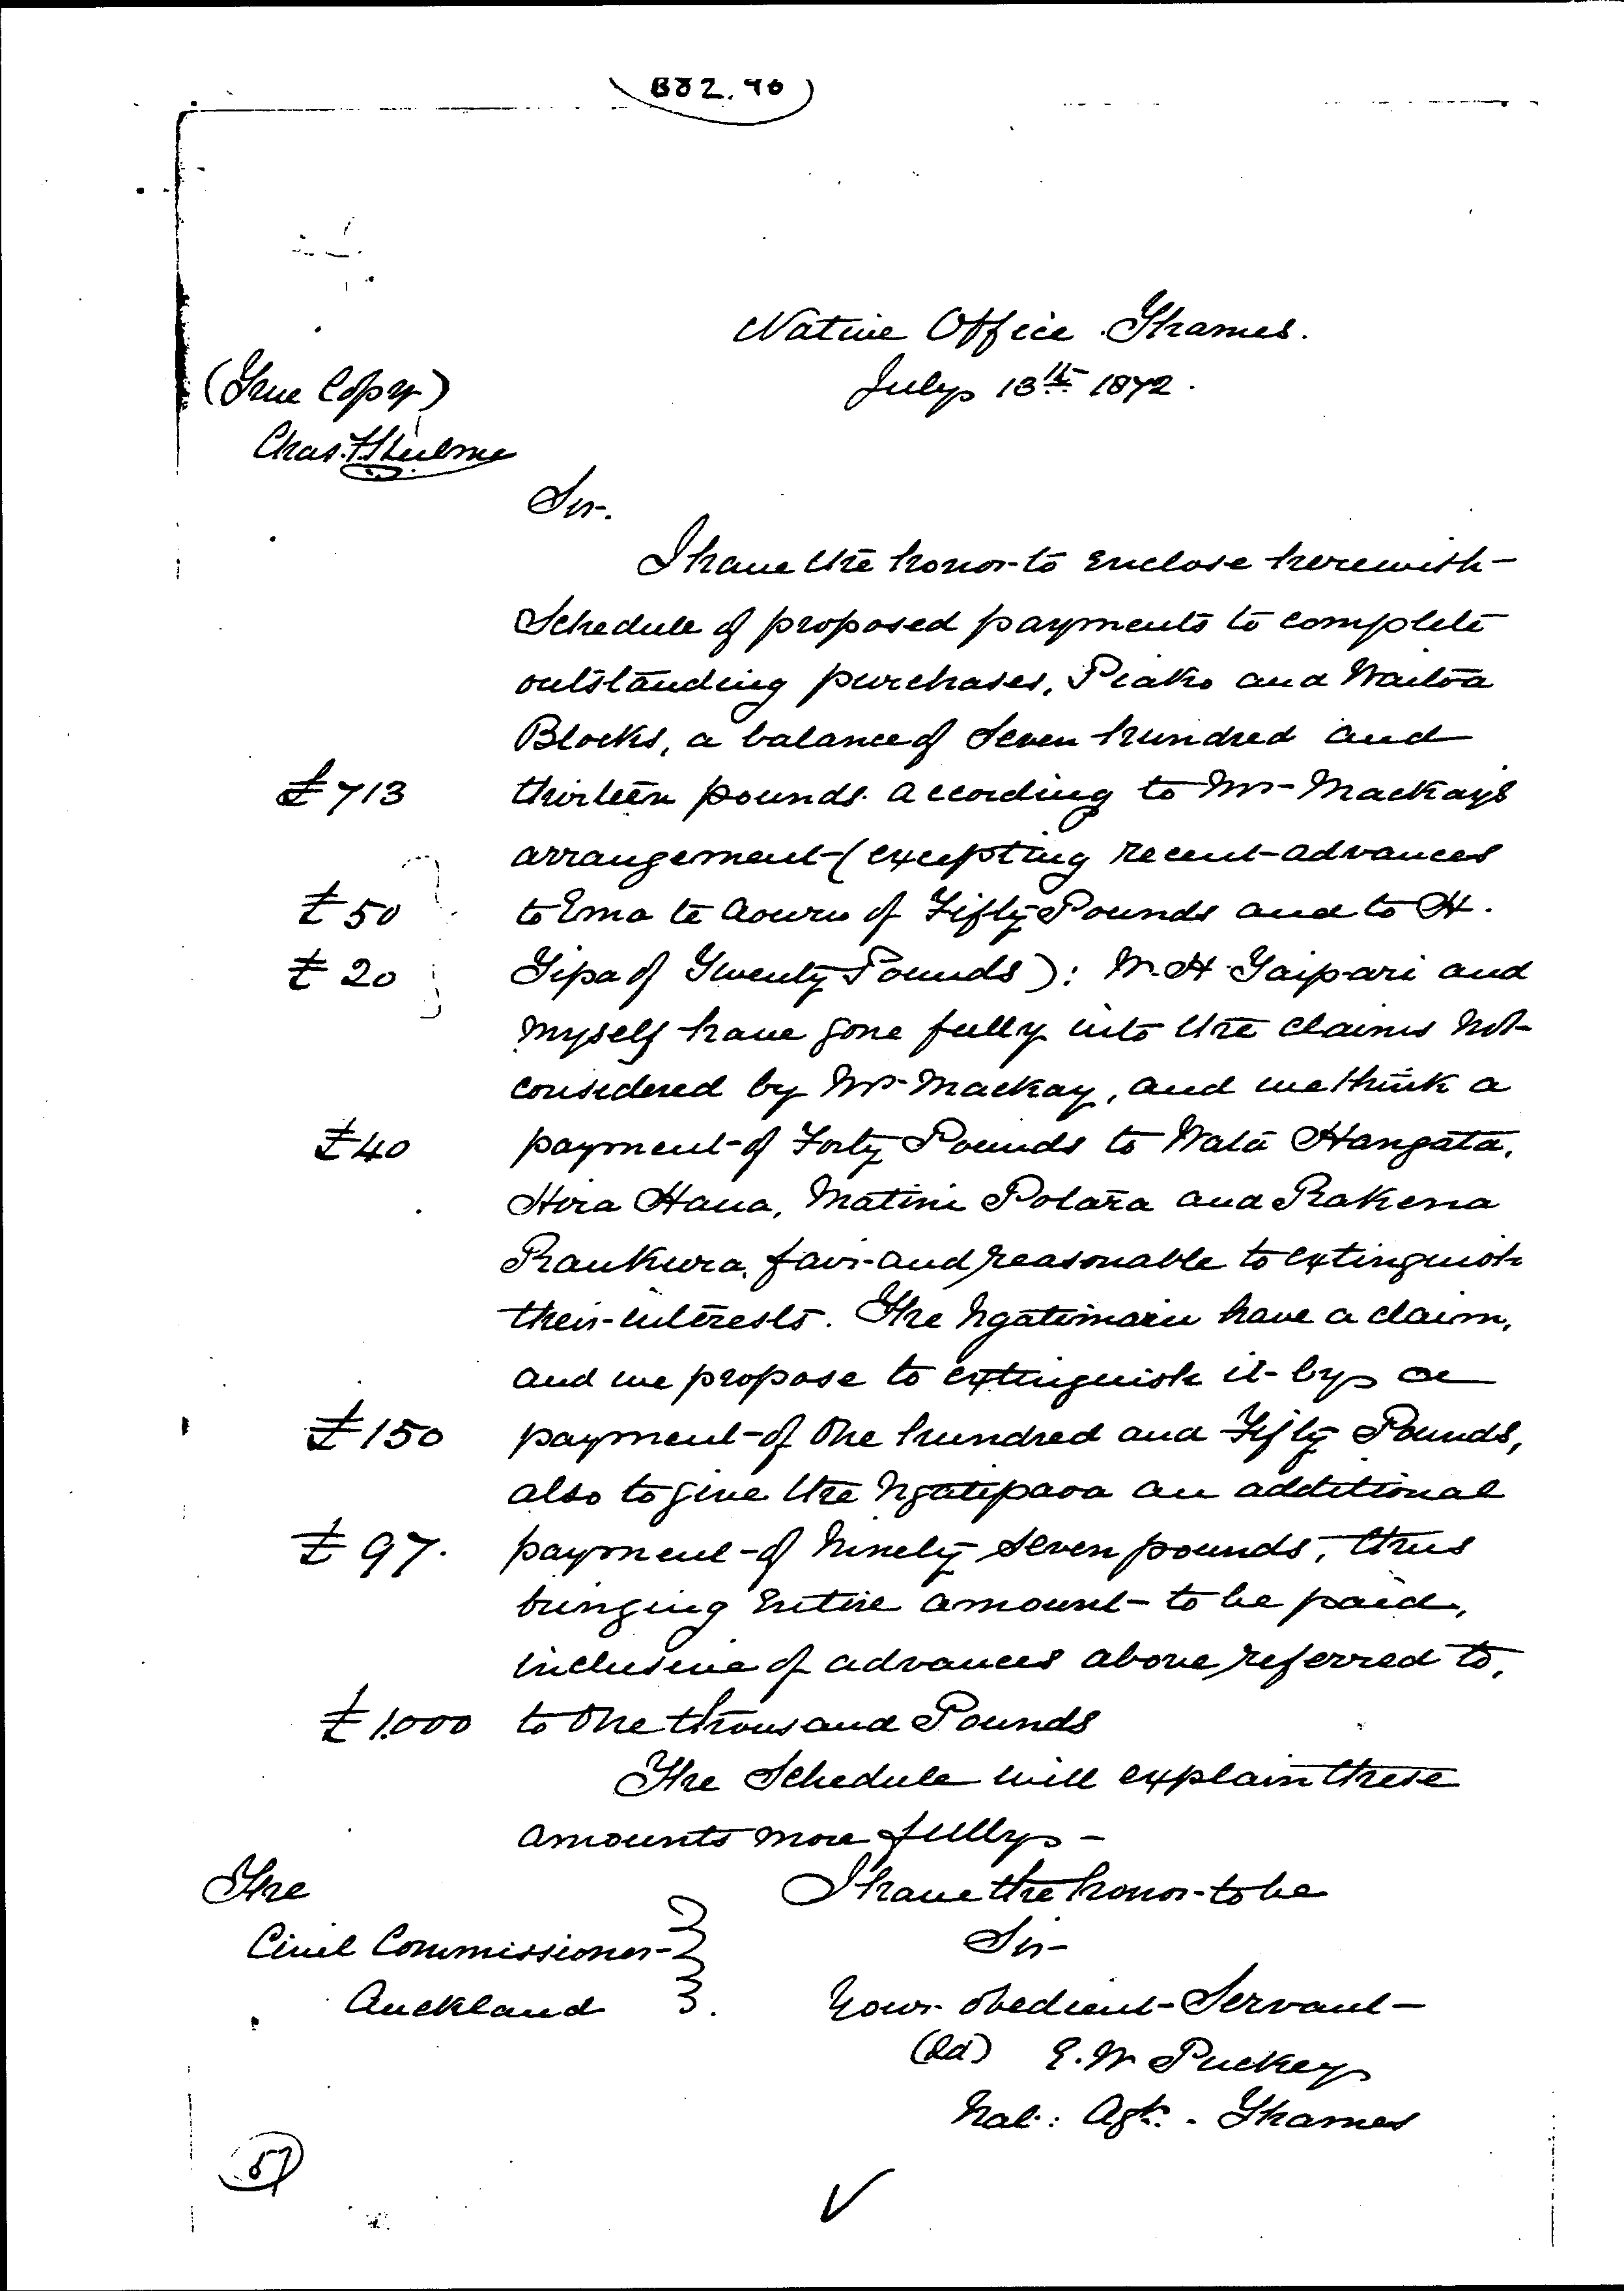 882.90
Native Office Thames.
July 13th 1872.
(True Copy)
Sir.
I have the honor to enclose herewith
Schedule of proposed payments to complete
outstanding purchases, Piako and Waitoa
Blocks, a balance of Seven hundred and
£713 thirteen pounds. according to Mr Mackays
arrangement (excepting recent advances
£50 to Ema te Aouru of Fifty Pounds and to H.
£20 Tipa of Twenty Pounds): W. H Taipari and
myself have gone fully into the claims not
considered by Mr Mackay, and we think a
£40 payment of Forty Pounds to Wata Hangata,
Hira Haua, Matini Potara and Rakena
Raukura, fair and reasonable to extinguish
their interests. The Ngatimaru have a claim,
and we propose to extinguish it by a
£150 payment of One hundred and Fifty Pounds,
also to give the Ngatipaoa an additional
£97. payment of Ninety Seven pounds, thus
bringing Entire amount to be paid,
inclusive of advances above referred to,
£1,000 to One thousand Pounds
The Schedule will explain these
amounts more fully -
I have the honor to be
Sir
Your obedient Servant
(Sd) E. W Puckey
Nat: Agt. Thames
The
Civil Commissioner
Auckland
57